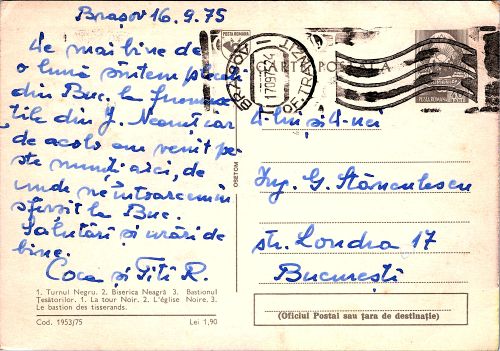 Brașov 16.9.75
De mai bine de
o lună sîntem plecați
din Buc. la frumoa
tile din J. Neamț iar
de acolo am venit pe
ste munți aici, de
unde ne întoarcem în
sfîrșit la Buc.
Salutări și urări de
bine.
Coca și Titi R.
1. Turnul Negru. 2. Biserica Neagră 3. Bastionul
Țesătorilor. 1. La tour Noir. 2. L'église Noire. 3.
Le bastion des tisserands.
Cod. 1953/75 Lei 1,90
OSETOM
POSTA ROMANA
CARTE POSTALA
BRASOV
170975-24
OF. TRANZIT
POSTA ROMANA
D-lui și D-nei
Ing. G. Stănculescu
str. Londra 17
București
(Oficiul Postal sau țara de destinație)